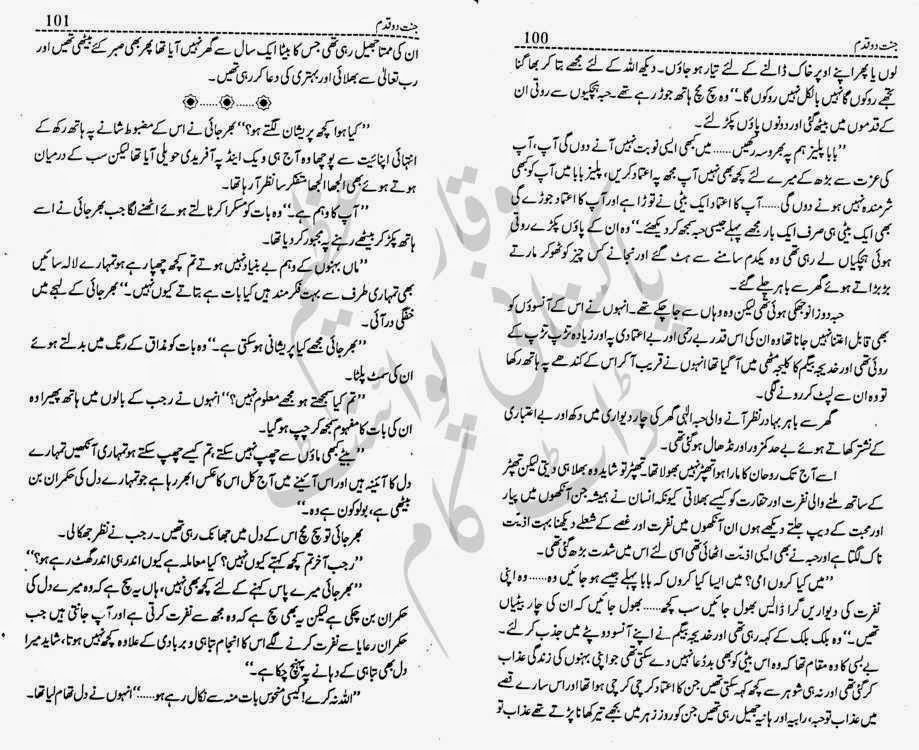 جنت دو قدم
100
لوں یا پھر اپنے اوپر خاک ڈالنے کے لئے تیار ہو جاؤں۔ دیکھ اللہ کے لئے مجھے بتا کر بھاگنا
تجھے روکوں گا نہیں بالکل نہیں روکوں گا۔‘‘ وہ سچ مچ ہاتھ جوڑ رہے تھے۔ حبہ ہچکیوں سے روتی ان
کے قدموں میں بیٹھ گئی اور دونوں پاؤں پکڑ لئے۔
’’بابا پلیز ہم پہ بھروسہ رکھیں...... میں کبھی ایسی نوبت نہیں آنے دوں گی آپ، آپ
کی عزت سے بڑھ کے میرے لئے کچھ بھی نہیں آپ مجھ پہ اعتماد کریں، پلیز بابا میں آپ کو کبھی
شرمندہ نہیں ہونے دوں گی...... آپ کا اعتماد ایک بیٹی نے توڑا ہے اور آپ کا اعتماد جوڑے گی
بھی ایک بیٹی ہی صرف ایک بار مجھے پہلے جیسی حبہ سمجھ کر دیکھئے۔‘‘ وہ ان کے پاؤں پکڑے روتی
ہوئی ہچکیاں لے رہی تھی وہ یکدم سامنے سے ہٹ گئے اور نجانے کس چیز کو ٹھوکر مارتے
بڑبڑاتے ہوئے گھر سے باہر چلے گئے۔
حبہ دوزانو جھکی ہوئی تھی لیکن وہ وہاں سے جا چکے تھے۔ انہوں نے اس کے آنسوؤں کو
بھی قابل اعتنا نہیں جانا تھا وہ ان کی اس قدر بے رحمی اور بے اعتمادی پہ اور زیادہ تڑپ تڑپ کے
روئی تھی اور خدیجہ بیگم کا کلیجہ مٹھی میں آ گیا تھا انہوں نے قریب آ کر اس کے کندھے پہ ہاتھ رکھا
تو وہ ان سے لپٹ کر رونے لگی۔
گھر سے باہر بہادر نظر آنے والی حبہ الٰہی گھر کی چار دیواری میں دکھ اور بے اعتباری
کے نشتر کھاتے ہوئے بے حد کمزور اور نڈھال ہو گئی تھی۔
اسے آج تک روحان کا مارا ہوا تھپڑ نہیں بھولا تھا۔ تھپڑ تو شاید وہ بھلا ہی دیتی لیکن تھپڑ
کے ساتھ ملنے والی نفرت اور حقارت کو کیسے بھلاتی کیونکہ انسان نے ہمیشہ جن آنکھوں میں پیار
اور محبت کے دیپ جلتے دیکھے ہوں ان آنکھوں میں نفرت اور غصے کے شعلے دیکھنا بہت اذیت
ناک لگتا ہے اور حبہ نے بھی ایسی اذیت اٹھائی تھی اسی لئے اس میں شدت بڑھ گئی تھی۔
’’میں کیا کروں امی؟ میں ایسا کیا کروں کہ بابا پہلے جیسے ہو جائیں وہ...... وہ اپنی
نفرت کی دیواریں گرا ڈالیں بھول جائیں سب کچھ...... بھول جائیں کہ ان کی چار بیٹیاں
تھیں۔‘‘ وہ بلک بلک کے کہہ رہی تھی اور خدیجہ بیگم نے اپنے آنسو دوپٹے میں جذب کر لئے۔
بے بسی کا وہ مقام تھا کہ وہ اس بیٹی کو بھی بددعا نہیں دے سکتی تھی جو اپنی بہنوں کی زندگی عذاب
کر گئی تھی اور نہ ہی شوہر سے کچھ کہہ سکتی تھیں جن کا اعتماد کرچی کرچی ہوا تھا اور اس سارے قصے
میں عذاب تو حبہ، رابیہ اور ہانیہ جھیل رہی تھیں جن کو روز زہر میں بجھے تیر کھانا پڑتے تھے عذاب تو
جنت دو قدم
101
ان کی ممتا جھیل رہی تھی جس کا بیٹا ایک سال سے گھر نہیں آیا تھا پھر بھی صبر کئے بیٹھی تھیں اور
رب تعالیٰ سے بھلائی اور بہتری کی دعا کر رہی تھیں۔
’’کیا ہوا کچھ پریشان لگتے ہو؟‘‘ بھرجائی نے اس کے مضبوط شانے پہ ہاتھ رکھ کے
انتہائی اپنائیت سے پوچھا وہ آج ہی ویک اینڈ پہ آفریدی حویلی آیا تھا لیکن سب کے درمیان
ہوتے ہوئے بھی الجھا الجھا متفکر سا نظر آ رہا تھا۔
’’آپ کا وہم ہے۔‘‘ وہ بات کو مسکرا کر ٹالتے ہوئے اٹھنے لگا جب بھرجائی نے اسے
ہاتھ پکڑ کر بیٹھے رہنے پہ مجبور کر دیا تھا۔
’’ماں بہنوں کے وہم بے بنیاد نہیں ہوتے تم کچھ چھپا رہے ہو تمہارے لالہ سائیں
بھی تمہاری طرف سے بہت فکرمند ہیں کیا بات ہے بتاتے کیوں نہیں۔‘‘ بھرجائی کے لہجے میں
خفگی در آئی۔
’’بھرجائی مجھے کیا پریشانی ہو سکتی ہے۔‘‘ وہ بات کو مذاق کے رنگ میں بدلتے ہوئے
ان کی سمت پلٹا۔
’’تم کیا سمجھتے ہو مجھے معلوم نہیں؟‘‘ انہوں نے رجب کے بالوں میں ہاتھ پھیرا وہ
ان کی بات کا مفہوم سمجھ کر چپ ہو گیا۔
’’بیٹے کبھی ماؤں سے چھپ نہیں سکتے تم کیسے چھپ سکتے ہو تمہاری آنکھیں تمہارے
دل کا آئینہ ہیں اور اس آئینے میں آج کل اس کا عکس ابھر رہا ہے جو تمہارے دل کی حکمران بن
بیٹھی ہے، بولو کون ہے وہ۔‘‘
بھرجائی تو سچ مچ اس کے دل میں جھانک رہی تھیں۔ رجب نے نظر جھکا لی۔
’’رجب آخر تم کچھ کہتے کیوں نہیں؟ کیا معاملہ ہے کیوں اندر ہی اندر گھٹ رہے ہو؟‘‘
’’بھرجائی میرے پاس کہنے کے لئے کچھ بھی نہیں، ہاں یہ سچ ہے کہ وہ میرے دل کی
حکمران بن چکی ہے لیکن یہ بھی سچ ہے کہ وہ مجھ سے نفرت کرتی ہے اور آپ جانتی ہیں جب
حکمران رعایا سے نفرت کرنے لگے اس کا انجام تباہی و بربادی کے علاوہ کچھ نہیں ہوتا، شاید میرا
دل بھی تباہی کے دہانے پہ پہنچ چکا ہے۔‘‘
’’اللہ نہ کرے! کیسی منحوس بات منہ سے نکال رہے ہو......‘‘ انہوں نے دل تھام لیا تھا۔
وقار عظیم
پاکستانی پوائنٹ
ڈاٹ کام